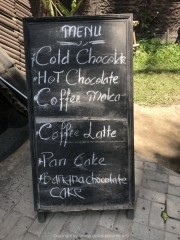 MENU
Cold Chocolate
HoT Chocolate
Coffee Moka
Coffee Latte
Pan Cake
BaNaNa Chocolate
CAKE